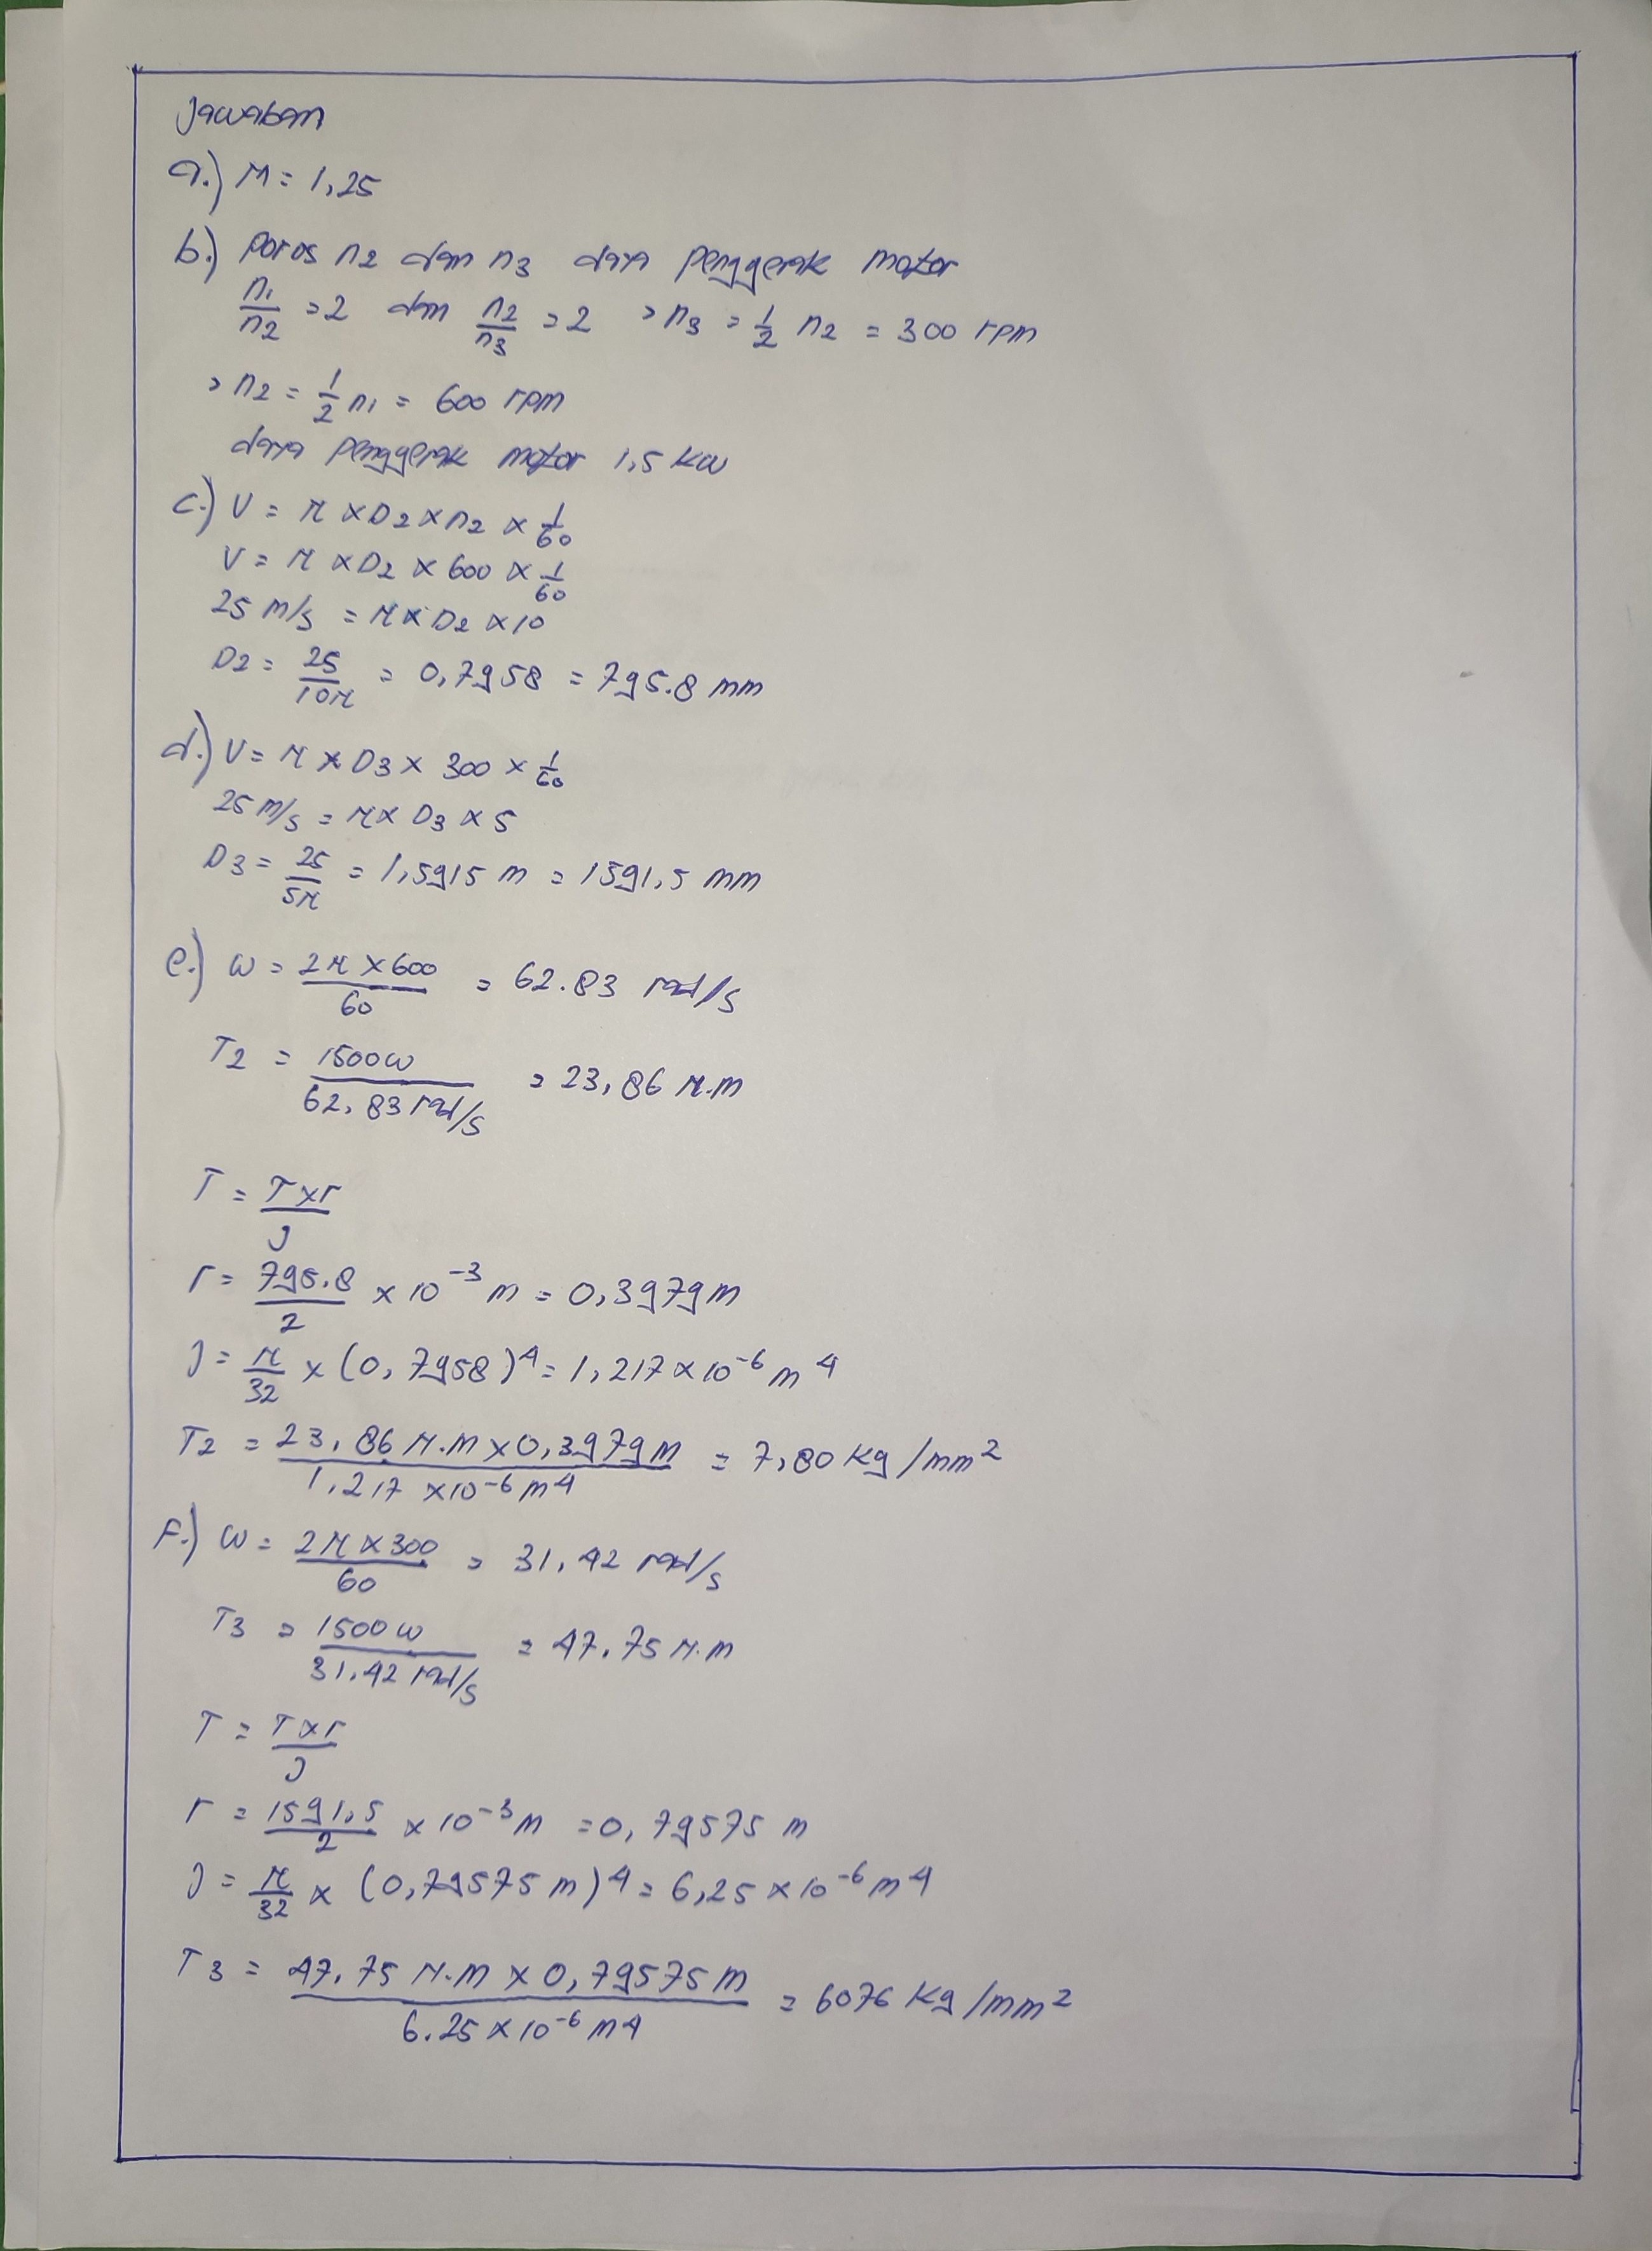 Jawaban
a.) M = 1,25
b.) Poros n2 dan n3 daya penggerak motor
n1/n2 = 2 dan n2/n3 = 2 > n3 = 1/2 n2 = 300 rpm
> n2 = 1/2 n1 = 600 rpm
daya penggerak motor 1,5 kW
c.) V = π × D2 × n2 × 1/60
V = π × D2 × 600 × 1/60
25 m/s = π × D2 × 10
D2 = 25/10π = 0,7958 = 795.8 mm
d.) V = π × D3 × 300 × 1/60
25 m/s = π × D3 × 5
D3 = 25/5π = 1,5915 m = 1591,5 mm
e.) ω = 2π × 600/60 = 62.83 rad/s
T2 = 1500 W/62,83 rad/s = 23,86 N.m
T = T×r/J
r = 795.8/2 × 10⁻³ m = 0,3979 m
J = π/32 × (0,7958)⁴ = 1,217 × 10⁻⁶ m⁴
T2 = 23,86 N.m × 0,3979 m/1,217 × 10⁻⁶ m⁴ = 7,80 kg/mm²
F.) ω = 2π × 300/60 = 31,42 rad/s
T3 = 1500 W/31,42 rad/s = 47.75 N.m
T = T×r/J
r = 1591,5/2 × 10⁻³ m = 0,79575 m
J = π/32 × (0,79575 m)⁴ = 6,25 × 10⁻⁶ m⁴
T3 = 47.75 N.m × 0,79575 m/6.25 × 10⁻⁶ m⁴ = 6076 kg/mm²